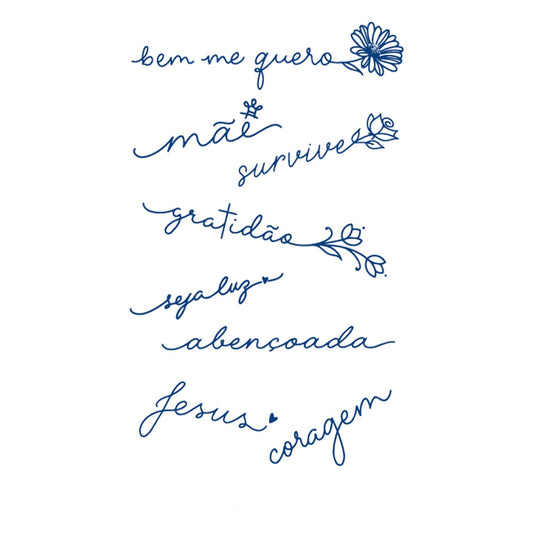 bem me quero
mãe
survive
gratidão
seja luz
abençoada
Jesus
coragem